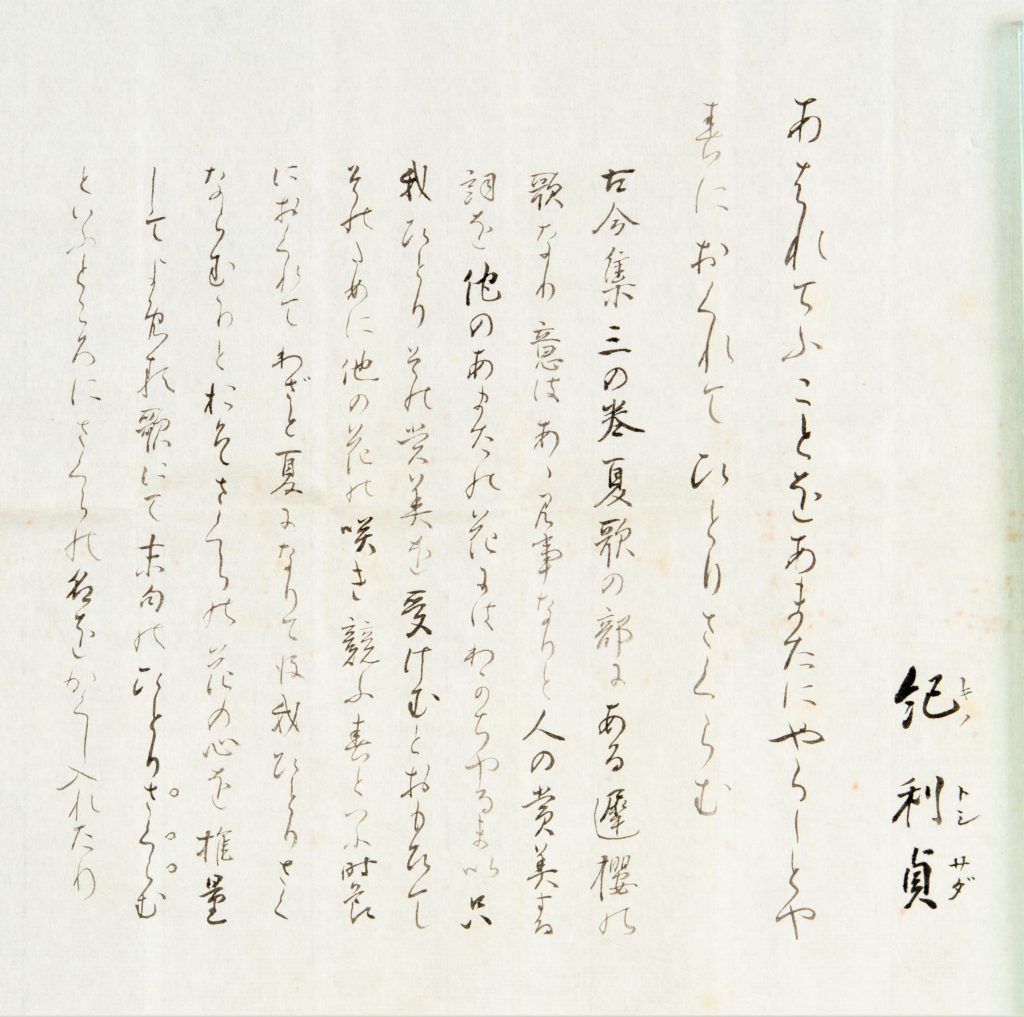 紀 利貞
キノ トシ サダ
あはれてふことをあまたにやらじとや
春におくれてひとりさくらむ
古今集三の巻夏歌の部にある遅櫻の
歌なり意はあゝ見事なりと人の賞美する
詞を他のあまたの花にはわかちやるまい只
我ひとり其の賞美を受けむとおもひて
そのために他の花の咲き競ふ春といふ時節
におくれてわざと夏になりて後我ひとりさく
ならむかとおそさくらの花の心を推量
してよめる歌にて末句のひとりさくらむ
といふところにさくらの名をかくし入れたり